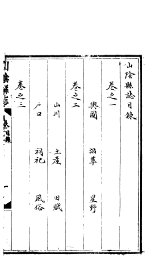 山陰縣誌目錄
卷之一
輿圖 沿革 星野
卷之二
山川 土產 田賦
卷之三
戶口 祠祀 風俗